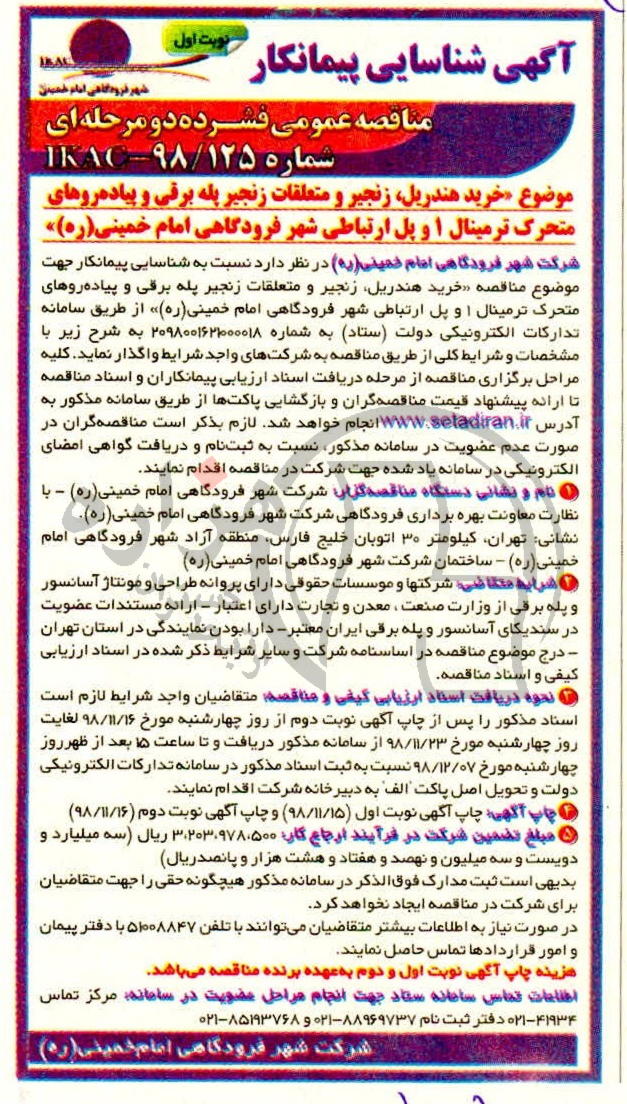 نوبت اول
IKAC
شهر فرودگاهی امام خمینی
آگهی شناسایی پیمانکار
مناقصه عمومی فشرده دو مرحله‌ای
شماره IKAC-۹۸/۱۲۵
موضوع «خرید هندریل، زنجیر و متعلقات زنجیر پله برقی و پیاده‌روهای
متحرک ترمینال ۱ و پل ارتباطی شهر فرودگاهی امام خمینی(ره)»
شرکت شهر فرودگاهی امام خمینی(ره) در نظر دارد نسبت به شناسایی پیمانکار جهت
موضوع مناقصه «خرید هندریل، زنجیر و متعلقات زنجیر پله برقی و پیاده‌روهای
متحرک ترمینال ۱ و پل ارتباطی شهر فرودگاهی امام خمینی(ره)» از طریق سامانه
تدارکات الکترونیکی دولت (ستاد) به شماره ۲۰۹۸۰۰۱۶۲۱۰۰۰۰۱۸ به شرح زیر با
مشخصات و شرایط کلی از طریق مناقصه به شرکت‌های واجد شرایط واگذار نماید. کلیه
مراحل برگزاری مناقصه از مرحله دریافت اسناد ارزیابی پیمانکاران و اسناد مناقصه
تا ارائه پیشنهاد قیمت مناقصه‌گران و بازگشایی پاکت‌ها از طریق سامانه مذکور به
آدرس www.setadiran.ir انجام خواهد شد. لازم بذکر است مناقصه‌گران در
صورت عدم عضویت در سامانه مذکور، نسبت به ثبت‌نام و دریافت گواهی امضای
الکترونیکی در سامانه یاد شده جهت شرکت در مناقصه اقدام نمایند.
۱ نام و نشانی دستگاه مناقصه‌گزار: شرکت شهر فرودگاهی امام خمینی(ره) - با
نظارت معاونت بهره برداری فرودگاهی شرکت شهر فرودگاهی امام خمینی(ره).
نشانی: تهران، کیلومتر ۳۰ اتوبان خلیج فارس، منطقه آزاد شهر فرودگاهی امام
خمینی(ره) - ساختمان شرکت شهر فرودگاهی امام خمینی(ره)
۲ شرایط متقاضی: شرکتها و موسسات حقوقی دارای پروانه طراحی و مونتاژ آسانسور
و پله برقی از وزارت صنعت، معدن و تجارت دارای اعتبار - ارائه مستندات عضویت
در سندیکای آسانسور و پله برقی ایران معتبر - دارا بودن نمایندگی در استان تهران
- درج موضوع مناقصه در اساسنامه شرکت و سایر شرایط ذکر شده در اسناد ارزیابی
کیفی و اسناد مناقصه.
۳ نحوه دریافت اسناد ارزیابی کیفی و مناقصه: متقاضیان واجد شرایط لازم است
اسناد مذکور را پس از چاپ آگهی نوبت دوم از روز چهارشنبه مورخ ۹۸/۱۱/۱۶ لغایت
روز چهارشنبه مورخ ۹۸/۱۱/۲۳ از سامانه مذکور دریافت و تا ساعت ۱۵ بعد از ظهر روز
چهارشنبه مورخ ۹۸/۱۲/۰۷ نسبت به ثبت اسناد مذکور در سامانه تدارکات الکترونیکی
دولت و تحویل اصل پاکت "الف" به دبیرخانه شرکت اقدام نمایند.
۴ چاپ آگهی: چاپ آگهی نوبت اول (۹۸/۱۱/۱۵) و چاپ آگهی نوبت دوم (۹۸/۱۱/۱۶)
۵ مبلغ تضمین شرکت در فرآیند ارجاع کار: ۳،۲۰۳،۹۷۸،۵۰۰ ریال (سه میلیارد و
دویست و سه میلیون و نهصد و هفتاد و هشت هزار و پانصدریال)
بدیهی است ثبت مدارک فوق‌الذکر در سامانه مذکور هیچگونه حقی را جهت متقاضیان
برای شرکت در مناقصه ایجاد نخواهد کرد.
در صورت نیاز به اطلاعات بیشتر متقاضیان می‌توانند با تلفن ۵۱۰۰۸۸۴۷ با دفتر پیمان
و امور قراردادها تماس حاصل نمایند.
هزینه چاپ آگهی نوبت اول و دوم به‌عهده برنده مناقصه می‌باشد.
اطلاعات تماس سامانه ستاد جهت انجام مراحل عضویت در سامانه: مرکز تماس
۰۲۱-۴۱۹۳۴ دفتر ثبت نام ۰۲۱-۸۸۹۶۹۷۳۷ و ۰۲۱-۸۵۱۹۳۷۶۸
شرکت شهر فرودگاهی امام‌خمینی(ره)